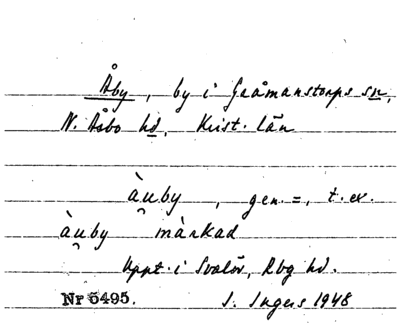 Åby, by i Gråmanstorps sn,
N. Åsbo hd, Krist. län
àu̯by, gen. =, t. ex.
àu̯by màrkad
Uppt. i Svalöv, Rbg hd.
Nr 5495. I. Ingers 1948